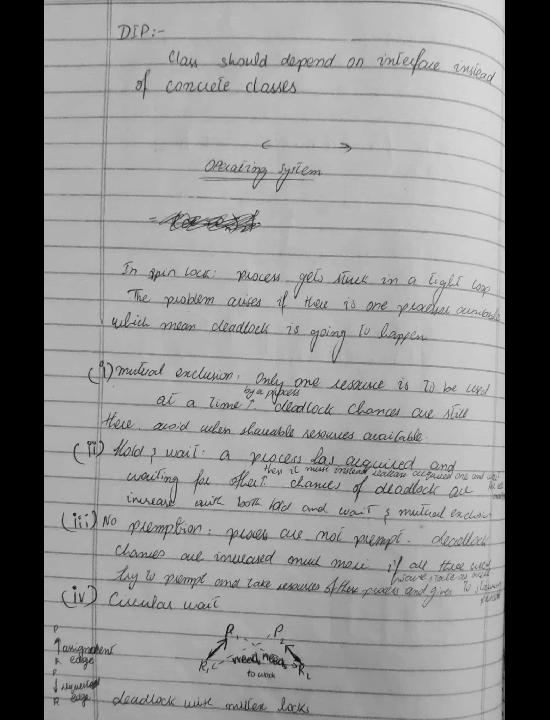 DIP:-
Class should depend on interface instead
of concrete classes
Operating System
In spin lock: process gets stuck in a tight loop
The problem arises if there is one processor
which mean deadlock is going to happen
(i) mutual exclusion: Only one resource is to be used
by a process
at a time ↑. deadlock chances are still
there. avoid when shareable resources available.
(ii) Hold & wait: a process has acquired and
then it must instead release acquired one and
waiting for other chances of deadlock are
increase with both hold and wait & mutual exclusion
(iii) No premption: process are not prempt. deadlock
chances are increased much more if all three
try to prempt and take resources of these process and gives to
(iv) Circular wait
P
↑ assignment
R edge
P
↓ request
R edge
P₂
R₁ need need R₂
to work
deadlock with mutex locks